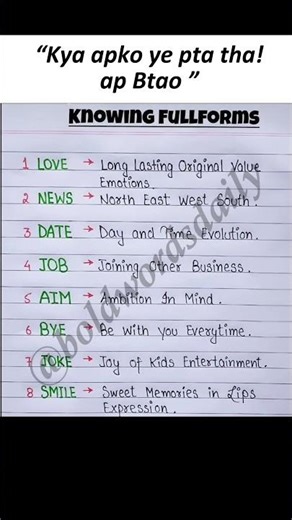 “Kya apko ye pta tha!
ap Btao ”
KNOWING FULLFORMS
1 LOVE → Long Lasting Original Value
Emotions.
2 NEWS → North East West South.
3 DATE → Day and Time Evolution.
4 JOB → Joining Other Business.
5 AIM → Ambition In Mind.
6 BYE → Be With you Everytime.
7 JOKE → Joy of Kids Entertainment.
8 SMILE → Sweet Memories in Lips
Expression.
@boldwordsdaily